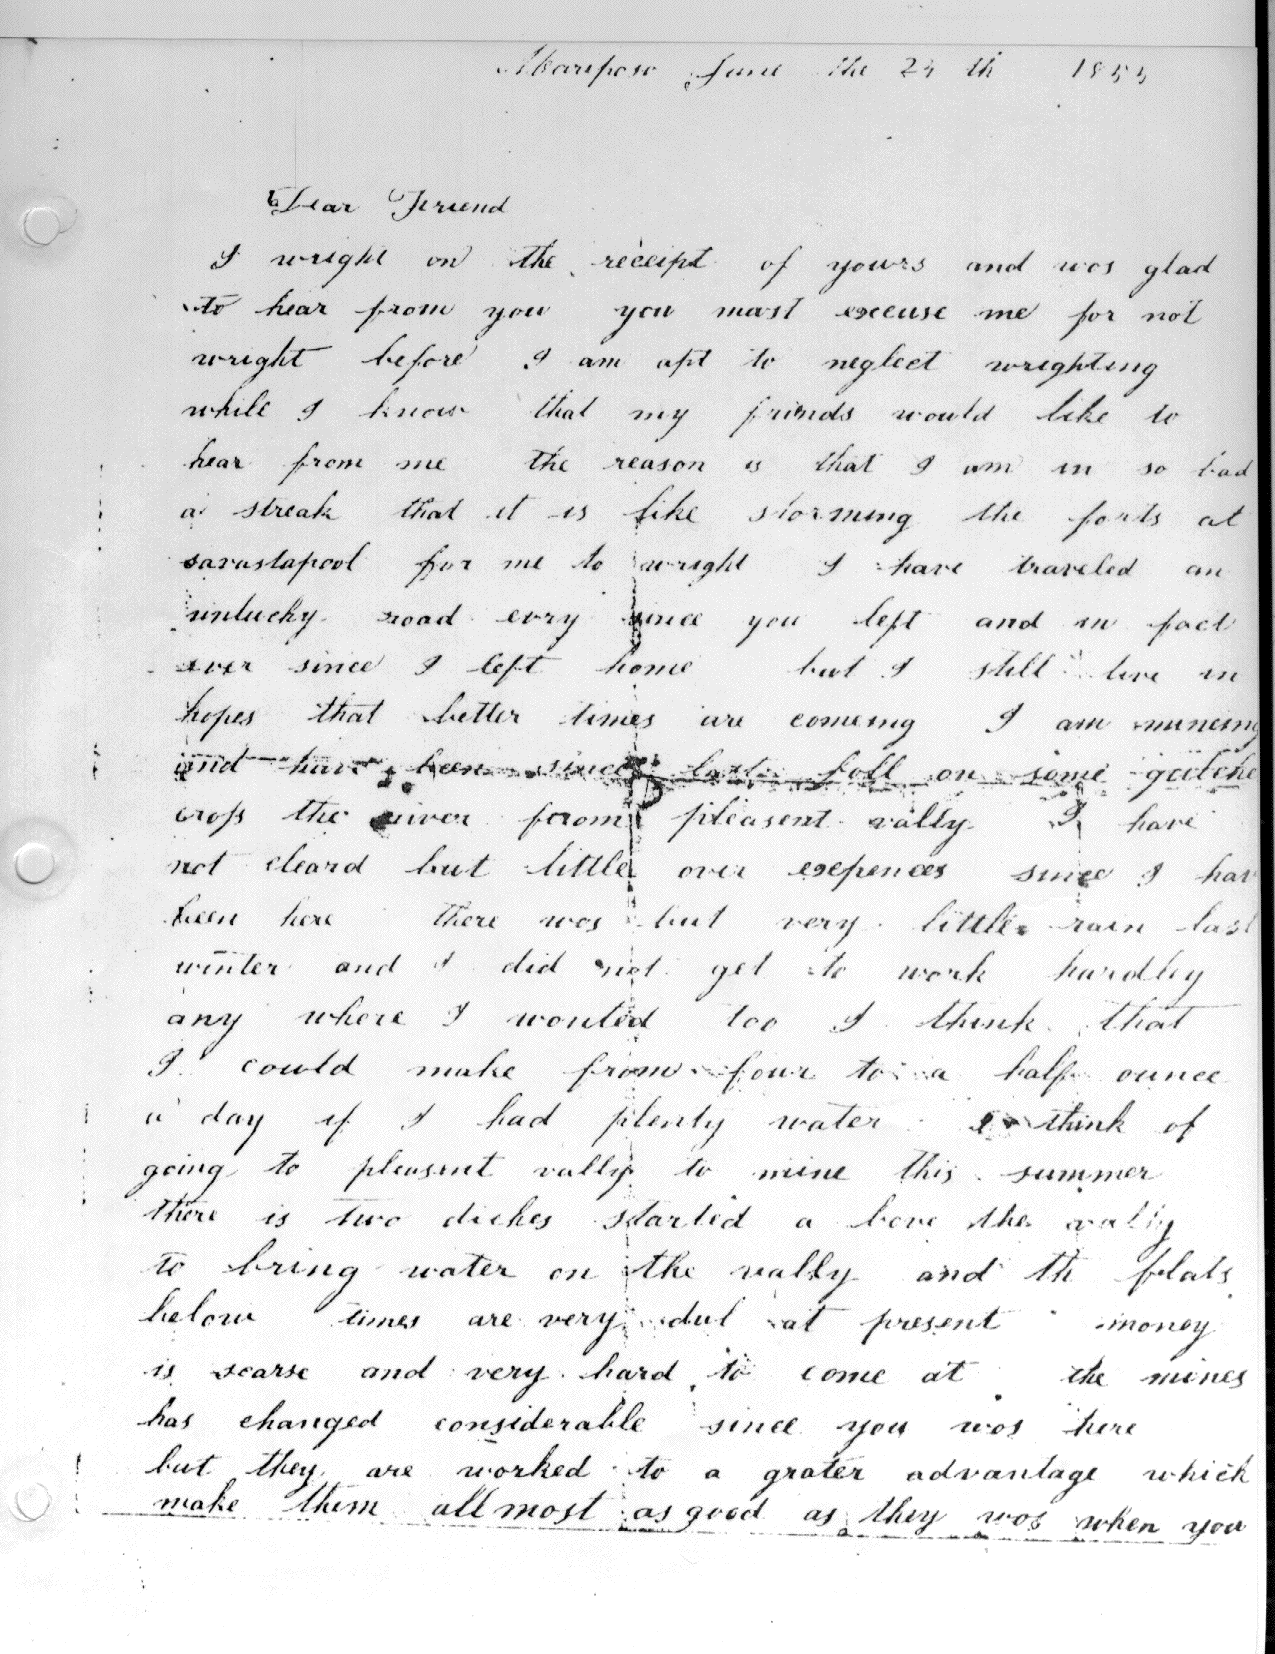 Mariposa June the 24 th 1855
Dear Friend
I wright on the receipt of yours and was glad
to hear from you you must exceuse me for not
wright before I am apt to neglect wrighting
while I know that my frinds would like to
hear from me the reason is that I am in so bad
a streak that it is like storming the forts at
savastapool for me to wright I have traveled an
unlucky road evry since you left and in fact
ever since I left home but I still live in
hopes that better times are comeing I am mineing
and have been since last fall on some gulche
cross the river from pleasent vally I have
not cleard but little over exepences since I hav
been here there was but very little rain last
winter and I did not get to work hardley
any where I wonted too I think that
I could make from four to a half ounce
a day if I had plenty water I think of
going to pleasent vally to mine this summer
there is two diches started a bove the vally
to bring water on the vally and th flats
below times are very dul at present money
is scarse and very hard to come at the mines
has changed considerable since you was here
but they are worked to a grater advantage which
make them allmost as good as they was when you